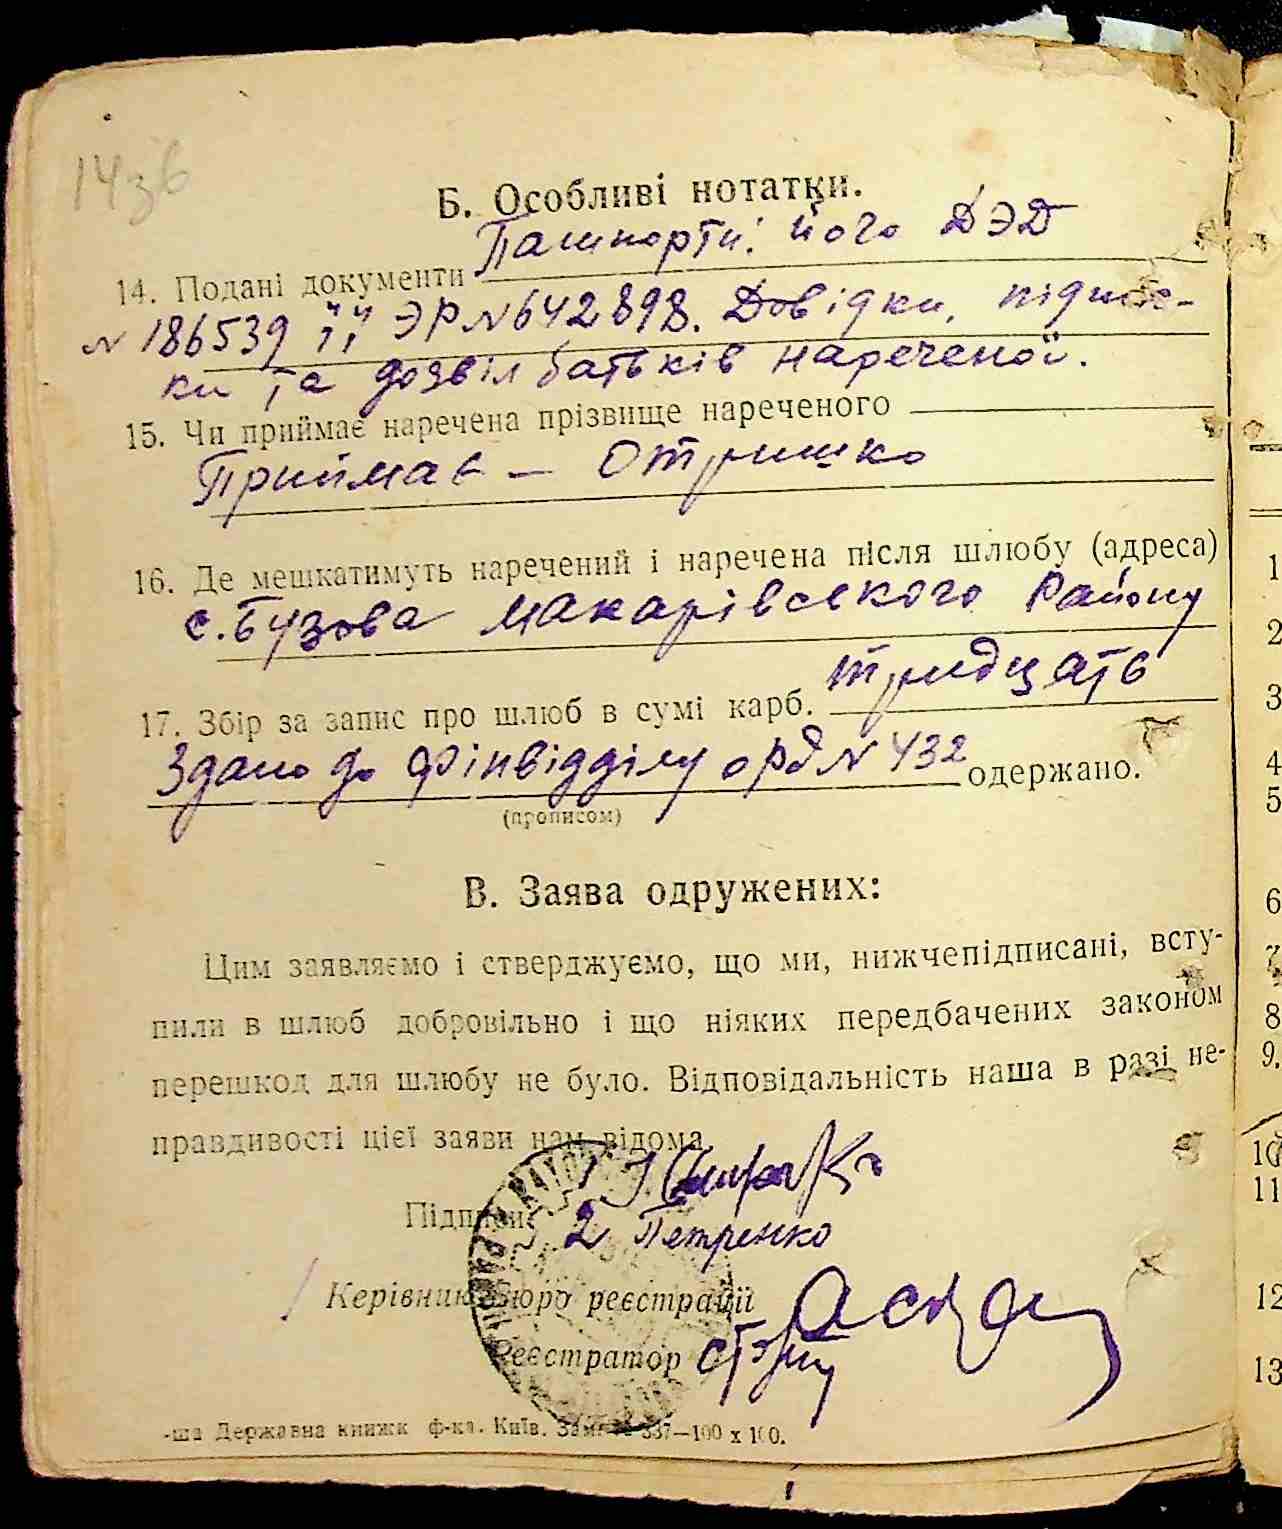 14зв
Б. Особливі нотатки.
14. Подані документи Пашпорти: його ДЭД
№ 186539 її ЭР №642898. Довідки, підпис-
ки та дозвіл батьків нареченої.
15. Чи приймає наречена прізвище нареченого
Приймає – Отришко
16. Де мешкатимуть наречений і наречена після шлюбу (адреса)
с. Бузова Макарівського Району
17. Збір за запис про шлюб в сумі карб. тридцать
Здано до Фінвідділу орд № 432 одержано.
(прописом)
В. Заява одружених:
Цим заявляємо і стверджуємо, що ми, нижчепідписані, всту-
пили в шлюб добровільно і що ніяких передбачених законом
перешкод для шлюбу не було. Відповідальність наша в разі не-
правдивості цієї заяви нам відома.
Підписи 1
2 Петренко
Керівник бюро реєстрації
Реєстратор
-ша Державна книжк ф-ка. Київ. Зам. 337—100 x 100.
1
2
3
4
5
6
7
8
9.
10
11
12
13